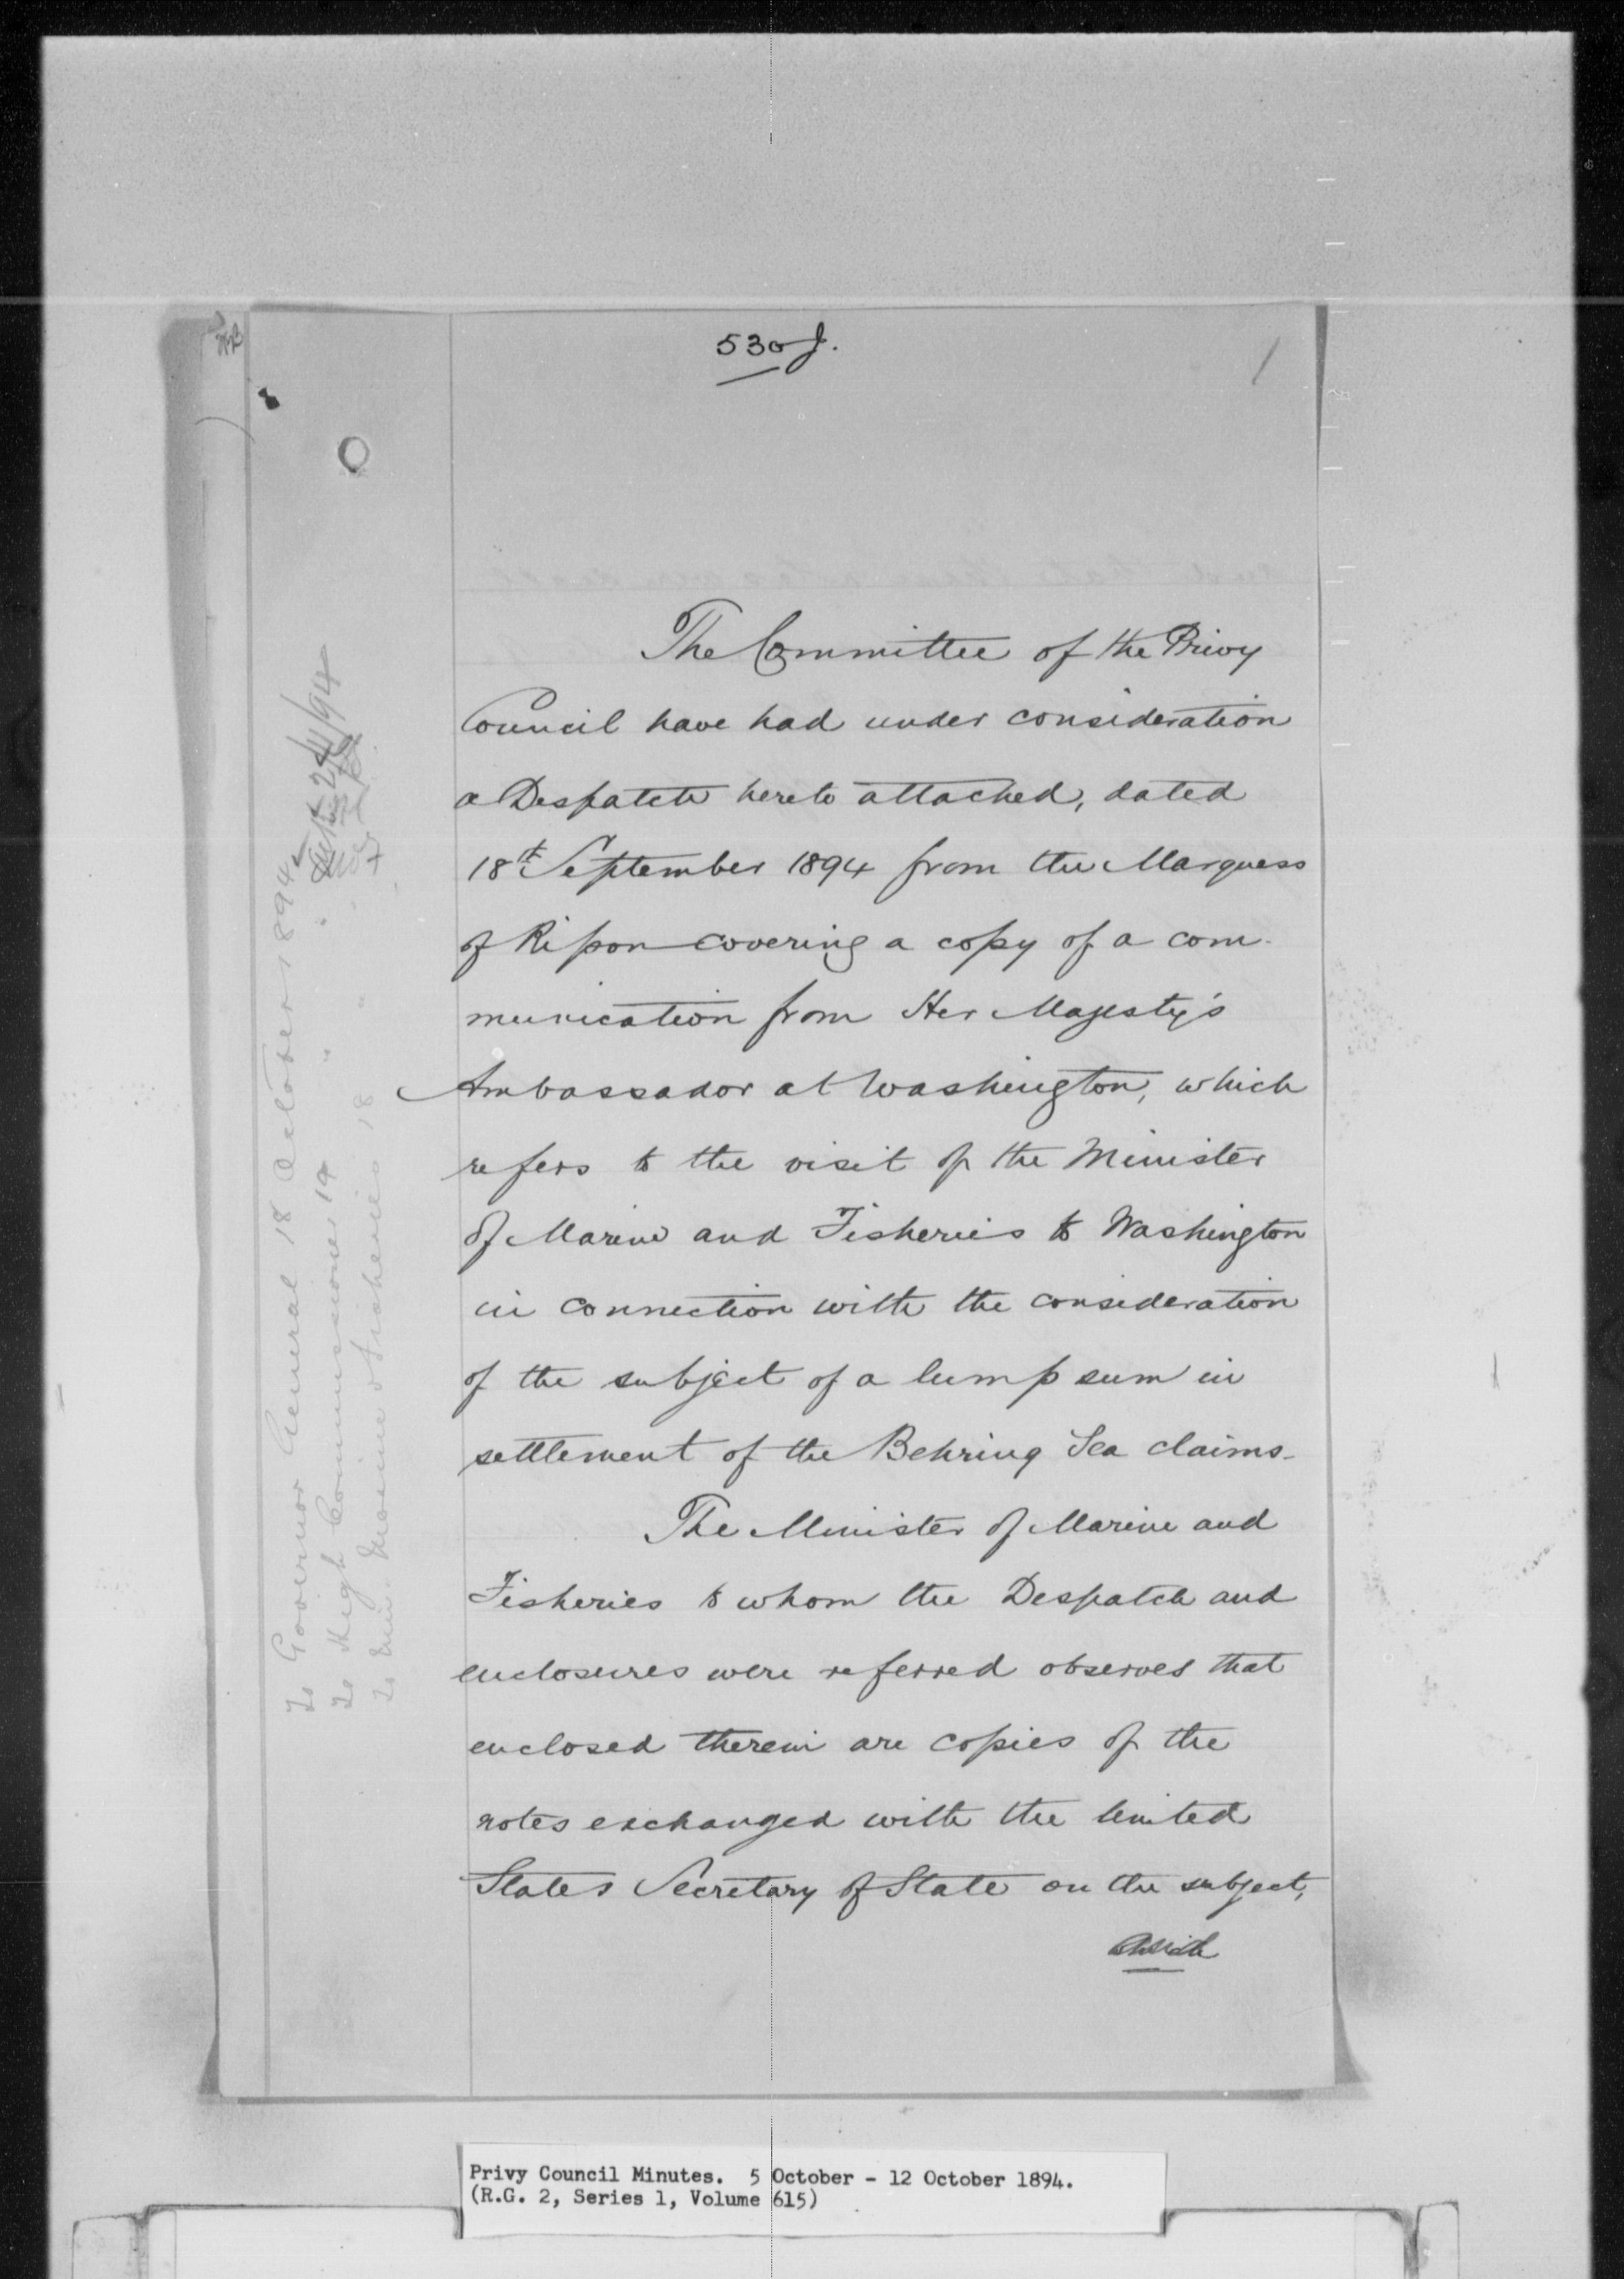 530 J.
1
The Committee of the Privy
Council have had under consideration
a Despatch hereto attached, dated
18th September 1894 from the Marquess
of Ripon covering a copy of a com-
munication from Her Majesty's
Ambassador at Washington, which
refers to the visit of the Minister
of Marine and Fisheries to Washington
in connection with the consideration
of the subject of a lump sum in
settlement of the Behring Sea claims.
The Minister of Marine and
Fisheries to whom the Despatch and
enclosures were referred observes that
enclosed therein are copies of the
notes exchanged with the United
States Secretary of State on the subject,
To Governor General 18 October 1894
To High Commissioner 19 " "
To Min. Marine & Fisheries 18 " "
Privy Council Minutes. 5 October - 12 October 1894.
(R.G. 2, Series 1, Volume 615)